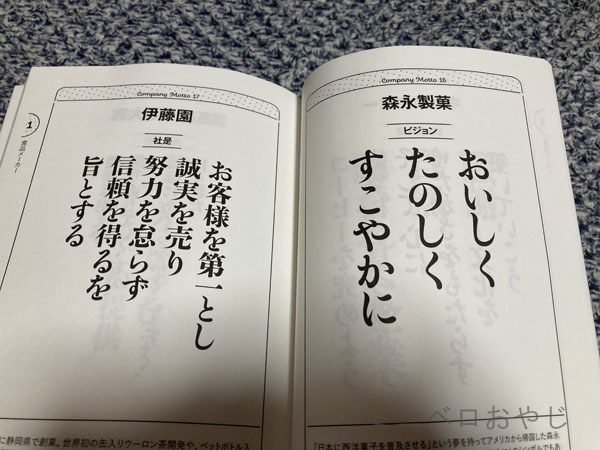 Company Motto 16
森永製菓
ビジョン
おいしく
たのしく
すこやかに
「日本に西洋菓子を普及させる」という夢を持ってアメリカから帰国した森永
Company Motto 17
伊藤園
社是
お客様を第一とし
誠実を売り
努力を怠らず
信頼を得るを
旨とする
に静岡県で創業。世界初の缶入りウーロン茶開発や、ペットボトル入
1
食品メーカー
ベロおやじ